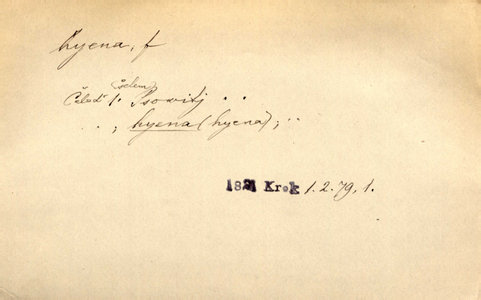 hyena, f
(šelem)
Čeleď 1. Psowitj . .
. . , hyena (hyena), . .
1821 Krok 1.2.79, 1.